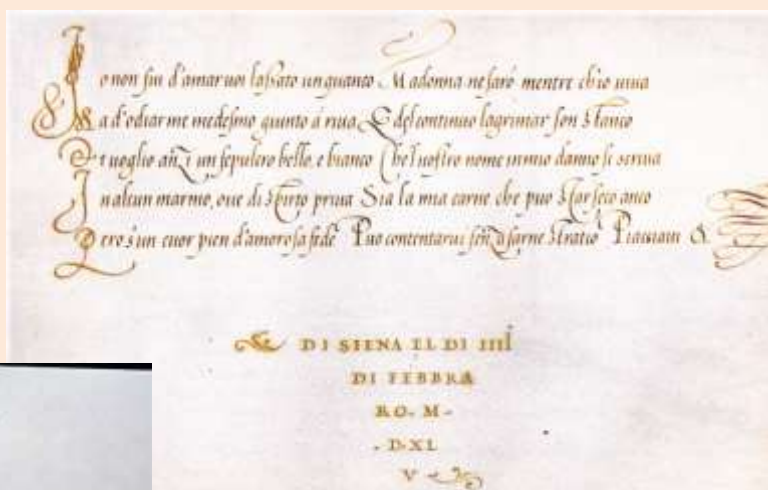 Io non fui d'amar uoi laßato unquanto Madonna ne sarò mentre ch'io uiua
Ma d'odiar me medesmo giunto à riua E del continuo lagrimar son stanco
Et uoglio anzi un sepulcro bello, e bianco Che'l uostro nome in mio danno si scriua
In alcun marmo, oue di spirto priua Sia la mia carne che puo star seco anco
Pero s'un cuor pien d'amorosa fede Puo contentarui senz usarne stratio &
DI SIENA IL DI IIII
DI FEBBRA
RO. M -
. D. XL
V